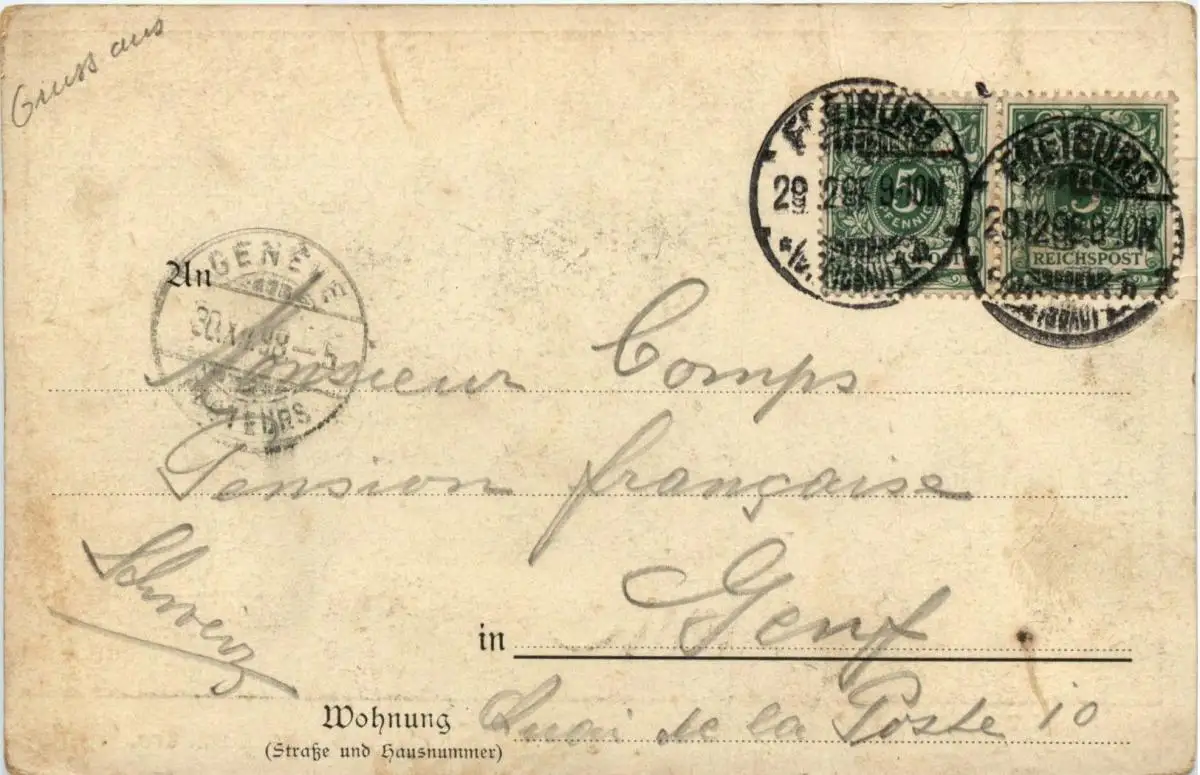 Gruss aus
FREIBURG
29.12.98 9-10N
FREIBURG
29.12.98 9-10N
5
REICHSPOST
5
REICHSPOST
GENÈVE
30.XII.98 - 5
An
Monsieur Comps
Pension française
Schweiz
in Genf
Wohnung Quai de la Poste 10
(Straße und Hausnummer)